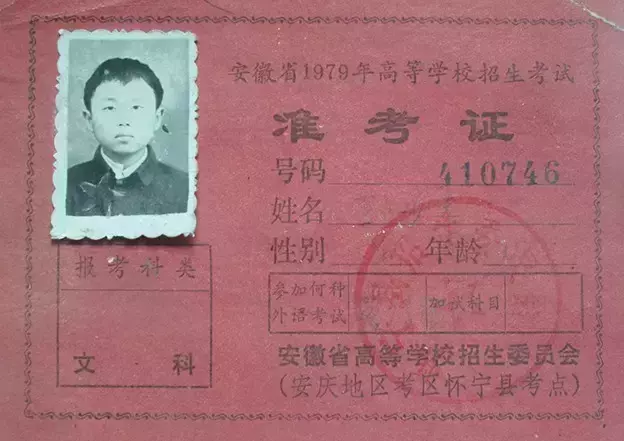 安徽省1979年高等学校招生考试
准考证
号码 410746
姓名
性别 年龄
报考科类
文科
参加何种
外语考试
加试科目
安徽省高等学校招生委员会
(安庆地区考区怀宁县考点)